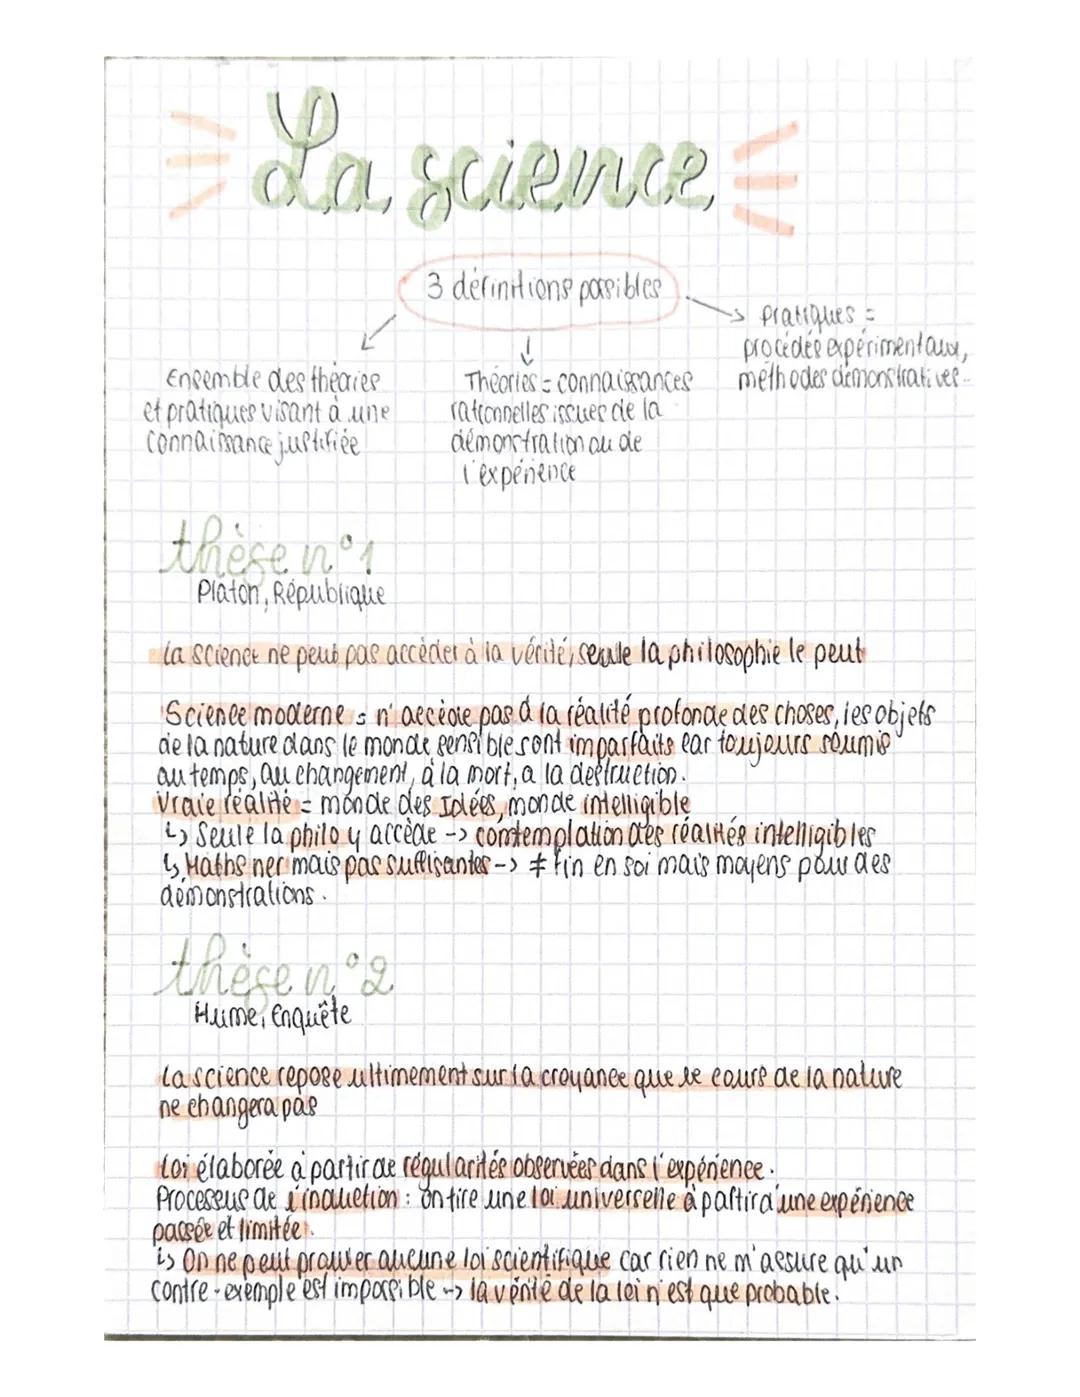 La science
3 définitions possibles
Pratiques =
procédés expérimentaux,
méthodes démonstratives..
Ensemble des théories
et pratiques visant à une
connaissance justifiée
Théories = connaissances
rationnelles issues de la
démonstration ou de
l'expérience
thèse n°1
Platon, République
La science ne peut pas accéder à la vérité, seule la philosophie le peut
Science moderne = n'accède pas à la réalité profonde des choses, les objets
de la nature dans le monde sensible sont imparfaits car toujours soumis
au temps, au changement, à la mort, à la destruction.
Vraie réalité = monde des Idées, monde intelligible
↳ Seule la philo y accède -> contemplation des réalités intelligibles
↳ Maths ner mais pas suffisantes -> ≠ fin en soi mais moyens pour des
démonstrations.
thèse n°2
Hume, Enquête
La science repose ultimement sur la croyance que le cours de la nature
ne changera pas
Loi élaborée à partir de régularités observées dans l'expérience.
Processus de l'induction : on tire une loi universelle à partir d'une expérience
passée et limitée.
↳ On ne peut prouver aucune loi scientifique car rien ne m'assure qu'un
contre-exemple est impossible -> la vérité de la loi n'est que probable.